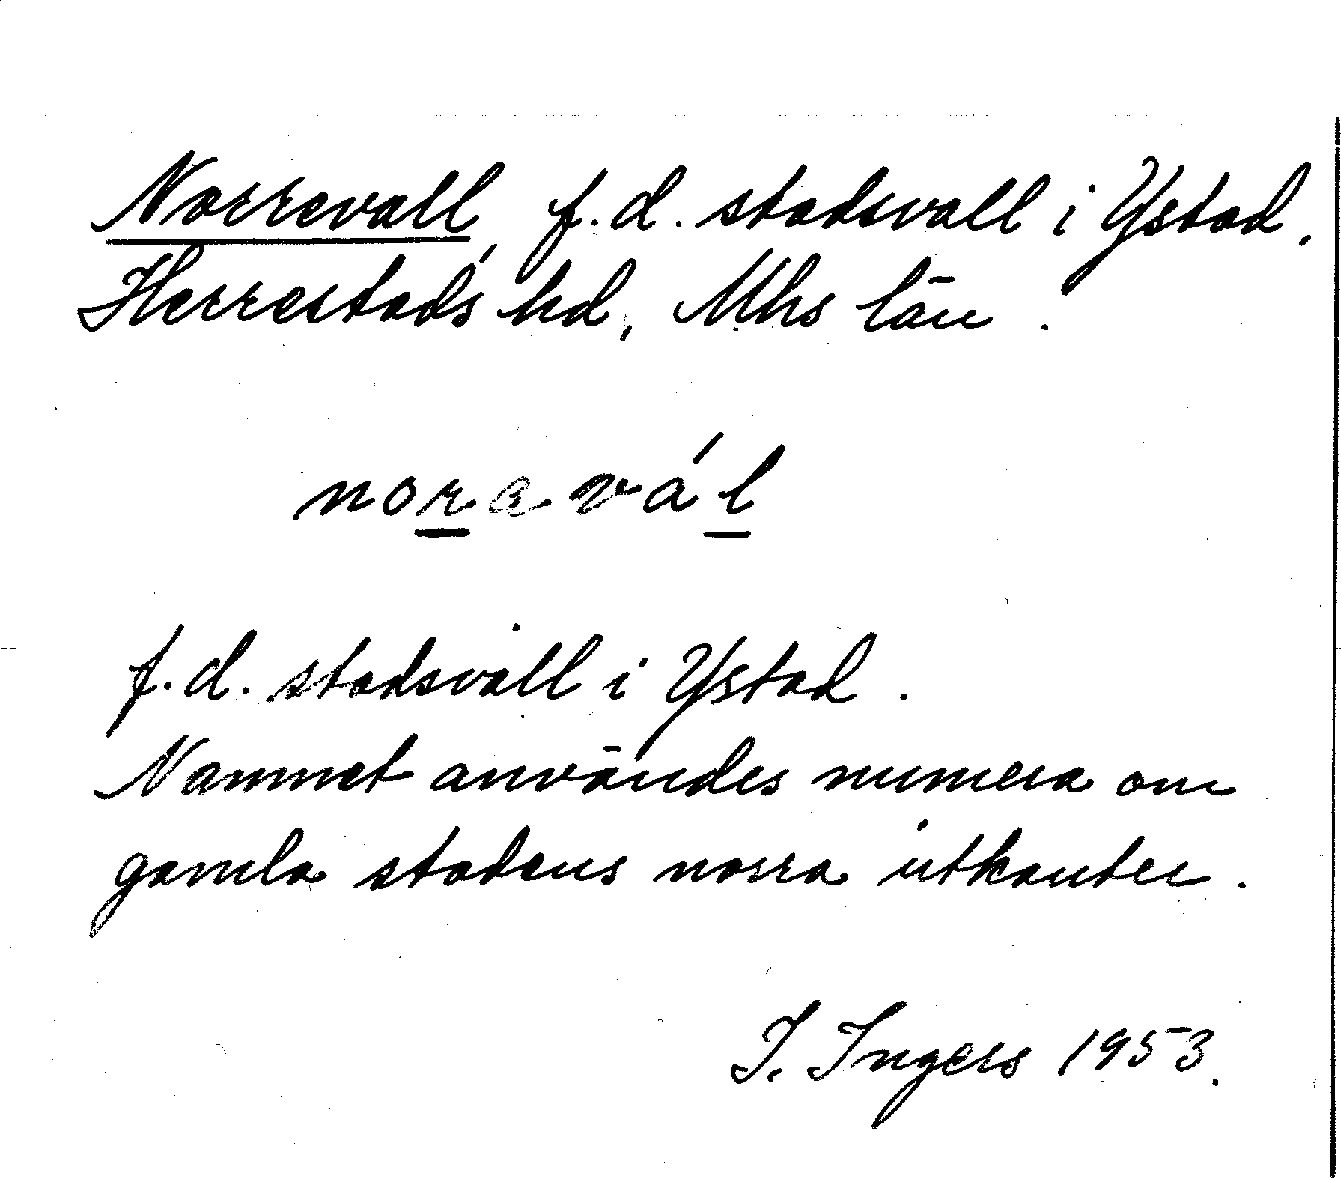 Norrevall, f.d. stadsvall i Ystad,
Herrestads hd, Mhs län.
noravál
f.d. stadsvall i Ystad.
Namnet användes numera om
gamla stadens norra utkanter.
I. Ingers 1953.